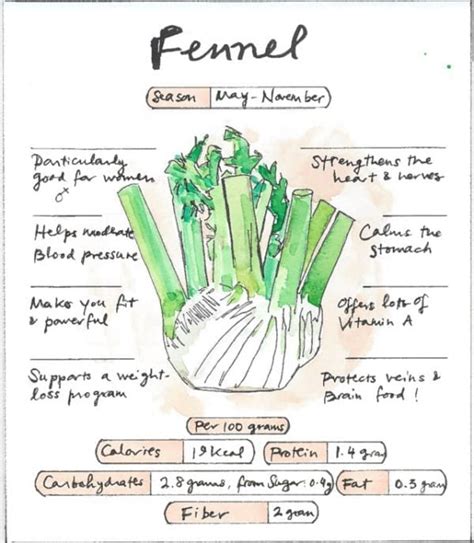 Fennel
Season May - November
Particularly
good for women
♂
Helps moderate
Blood pressure
Makes you fit
& powerful
Supports a weight-
loss program
Strengthens the
heart & nerves
Calms the
stomach
Offers lots of
Vitamin A
Protects veins &
Brain food!
Per 100 grams
Calories 19 kcal Protein 1.4 gram
Carbohydrates 2.8 grams, from Sugar: 0.4g Fat 0.3 gram
Fiber 2 gram